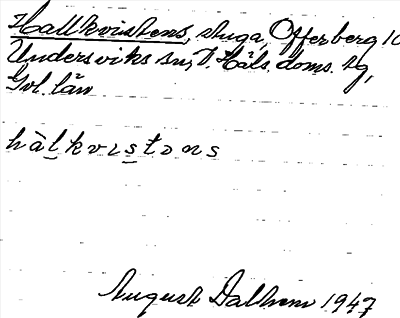 Hallkvistens, stuga, Offerberg 10
Undersviks sn, V. Häls. doms. tg,
Gvl. län
hàlkvɪstɔns
August Dalhem 1947